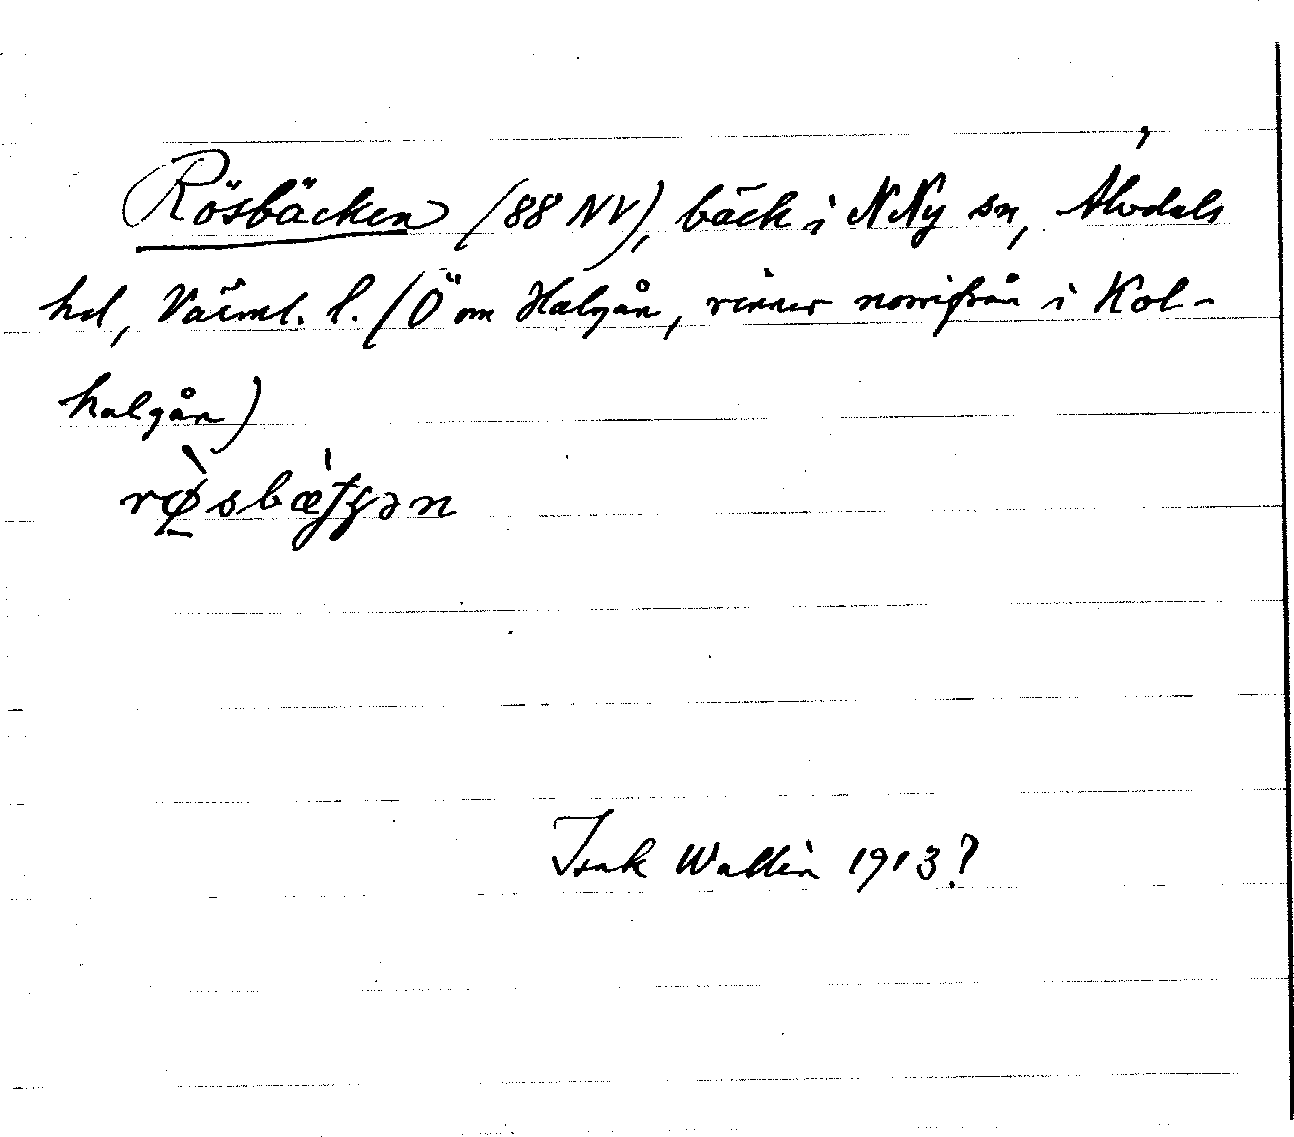 Rösbäcken (88 NV), bäck i N Ny sn, Älvdals
hd, Värml. l. (Ö om Halgån, rinner norrifrån i Kol-
halgån)
Isak Wallin 1913?